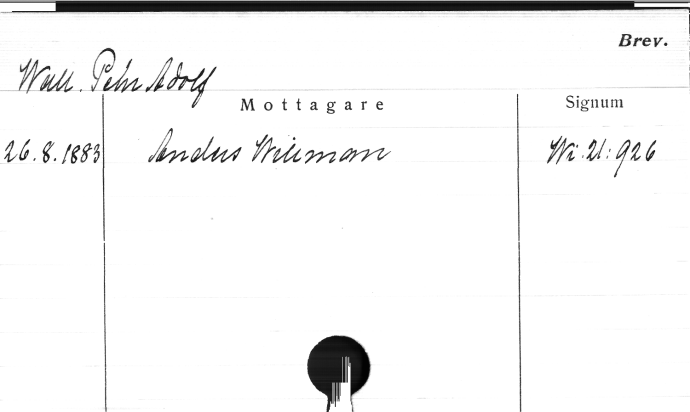 Brev.
Wall. Pehr Adolf
Mottagare Signum
26.8.1883 Anders Willman Wi.21:926